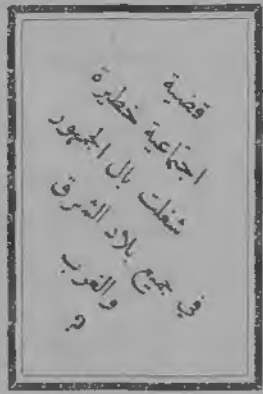 قضية
اجتماعية خطيرة
شغلت بال الجمهور
في جميع بلاد الشرق
والغرب